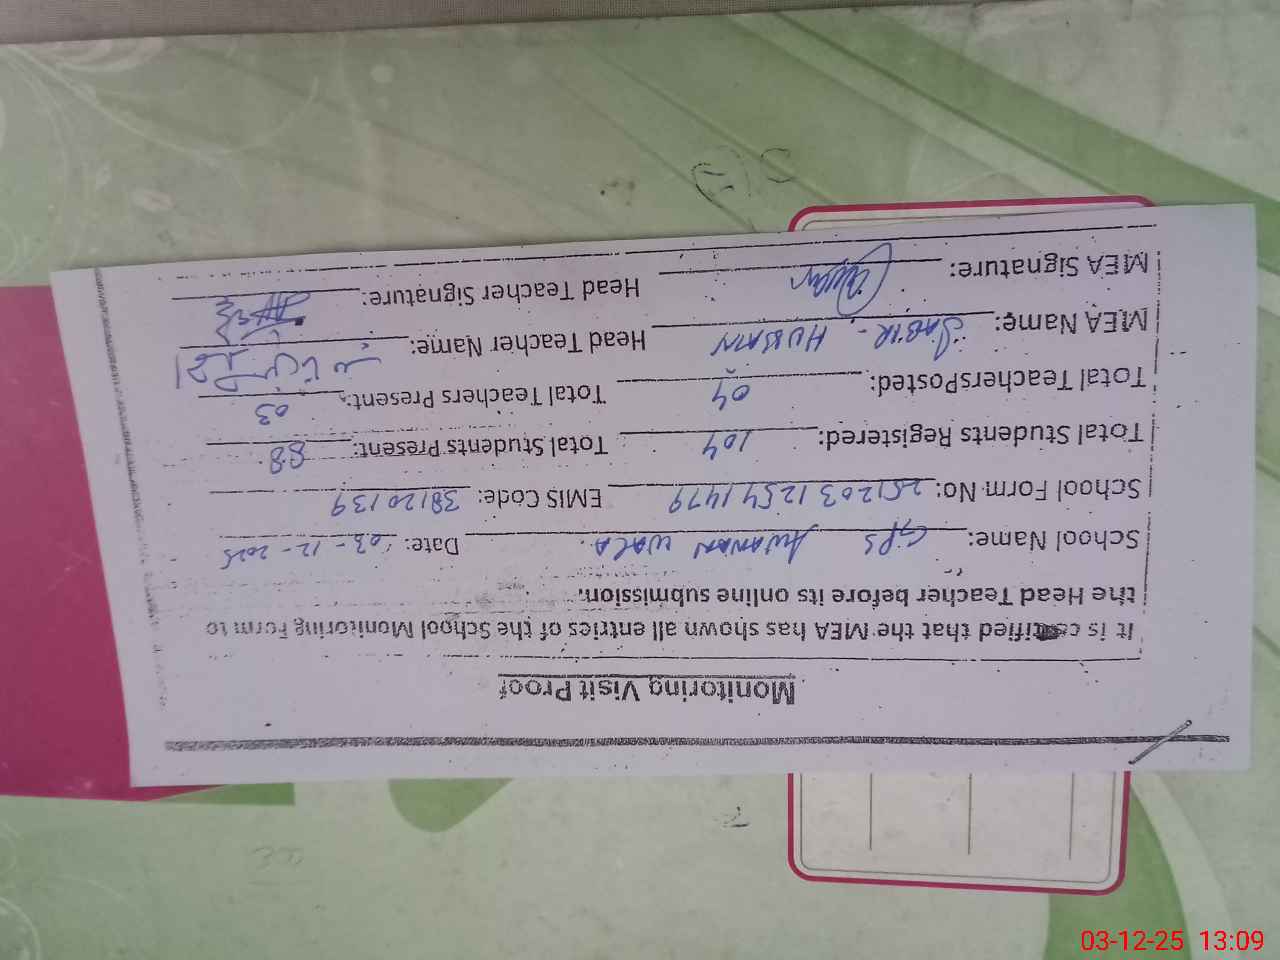 Monitoring Visit Proof
It is certified that the MEA has shown all entries of the School Monitoring Form to
the Head Teacher before its online submission.
School Name: GPS AWANAN WALA. Date: 03-12-2025
School Form No: 251203 1254 1479 EMIS Code: 38120139
Total Students Registered: 104 Total Students Present: 88
Total TeachersPosted: 04 Total Teachers Present: 03
MEA Name: SABIR - HUSSAIN Head Teacher Name:
MEA Signature: Head Teacher Signature:
03-12-25 13:09